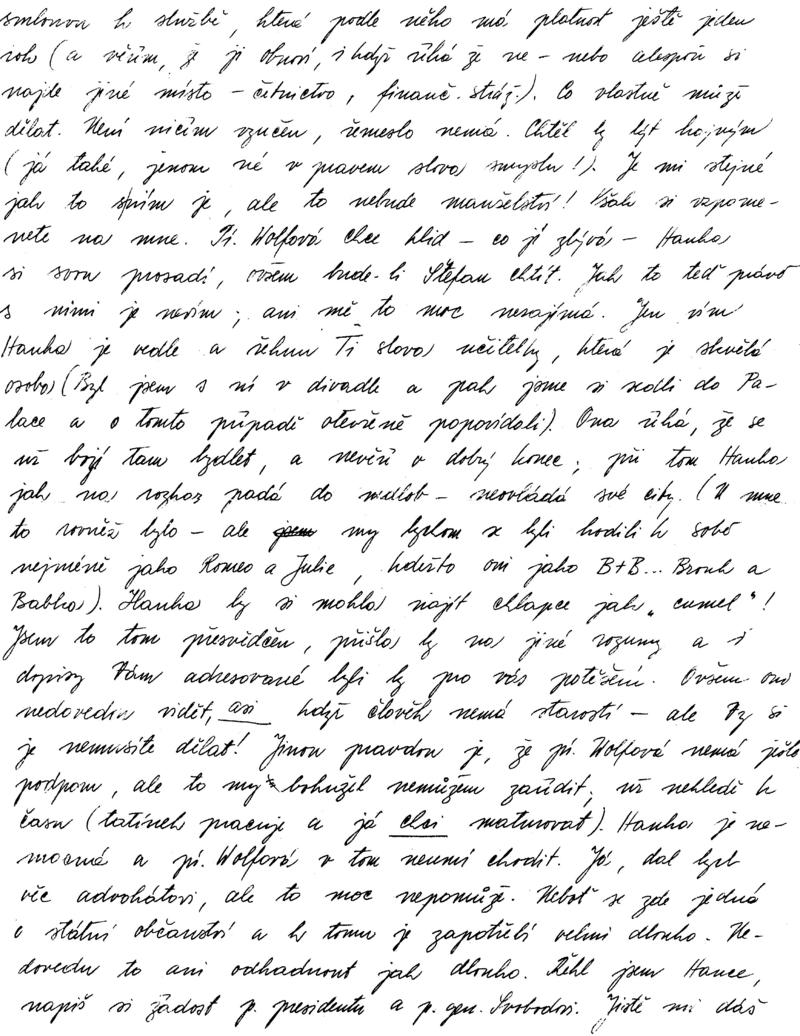 smlouvu k službě, která podle něho má platnost ještě jeden
rok (a věřím, že ji obnoví, i když říká že ne - nebo alespoň si
najde jiné místo - četnictvo, finanč. stráž.). Co vlastně může
dělat. Není ničím vyučen, řemeslo nemá. Chtěl by být hajným
(já také, jenom né v pravem slova smyslu!). Je mi stejné
jak to s ním je, ale to nebude manželství! Však si vzpome-
nete na mne. Pí. Wolfová chce klid - co jí zbývá - Hanka
si svou prosadí, ovšem bude-li Štefan chtít. Jak to teď právě
s nimi je nevím; ani mě to moc nezajímá. Jen vím
Hanka je vedle a řeknu Ti slova učitelky, která je skvělá
osoba (Byl jsem s ní v divadle a pak jsme si sedli do Pa-
lace a o tomto případě otevřeně popovídali). Ona říká, že se
už bojí tam bydlet, a nevěří v dobrý konec; při tom Hanka
jak na rozkaz padá do mdlob - neovládá své city. (U mne
to rovněž bylo - ale jsem my bychom se byli hodili k sobě
nejméně jako Romeo a Julie, kdežto oni jako B+B... Brouk a
Babka). Hanka by si mohla najít chlapce jak „cumel"!
Jsem to tom přesvědčen, přišla by na jiné rozumy a i
dopisy Vám adresované byli by pro vás potěšení. Ovšem ona
nedovedou vidět, asi když člověk nemá starostí - ale Vy si
je nemusíte dělat! Jinou pravdou je, že pí. Wolfová nemá ještě
podporu, ale to my bohužel nemůžem zařídit; už nehledě k
času (tatínek pracuje a já chci maturovat). Hanka je ne-
mocná a pí. Wolfová v tom neumí chodit. Já, dal bych
věc advokátovi, ale to moc nepomůže. Neboť se zde jedná
o státní občanství a k tomu je zapotřebí velmi dlouho. Ne-
dovedu to ani odhadnout jak dlouho. Řekl jsem Hance,
napiš si žádost p. presidentu a p. gen. Svobodovi. Jistě mi dáš